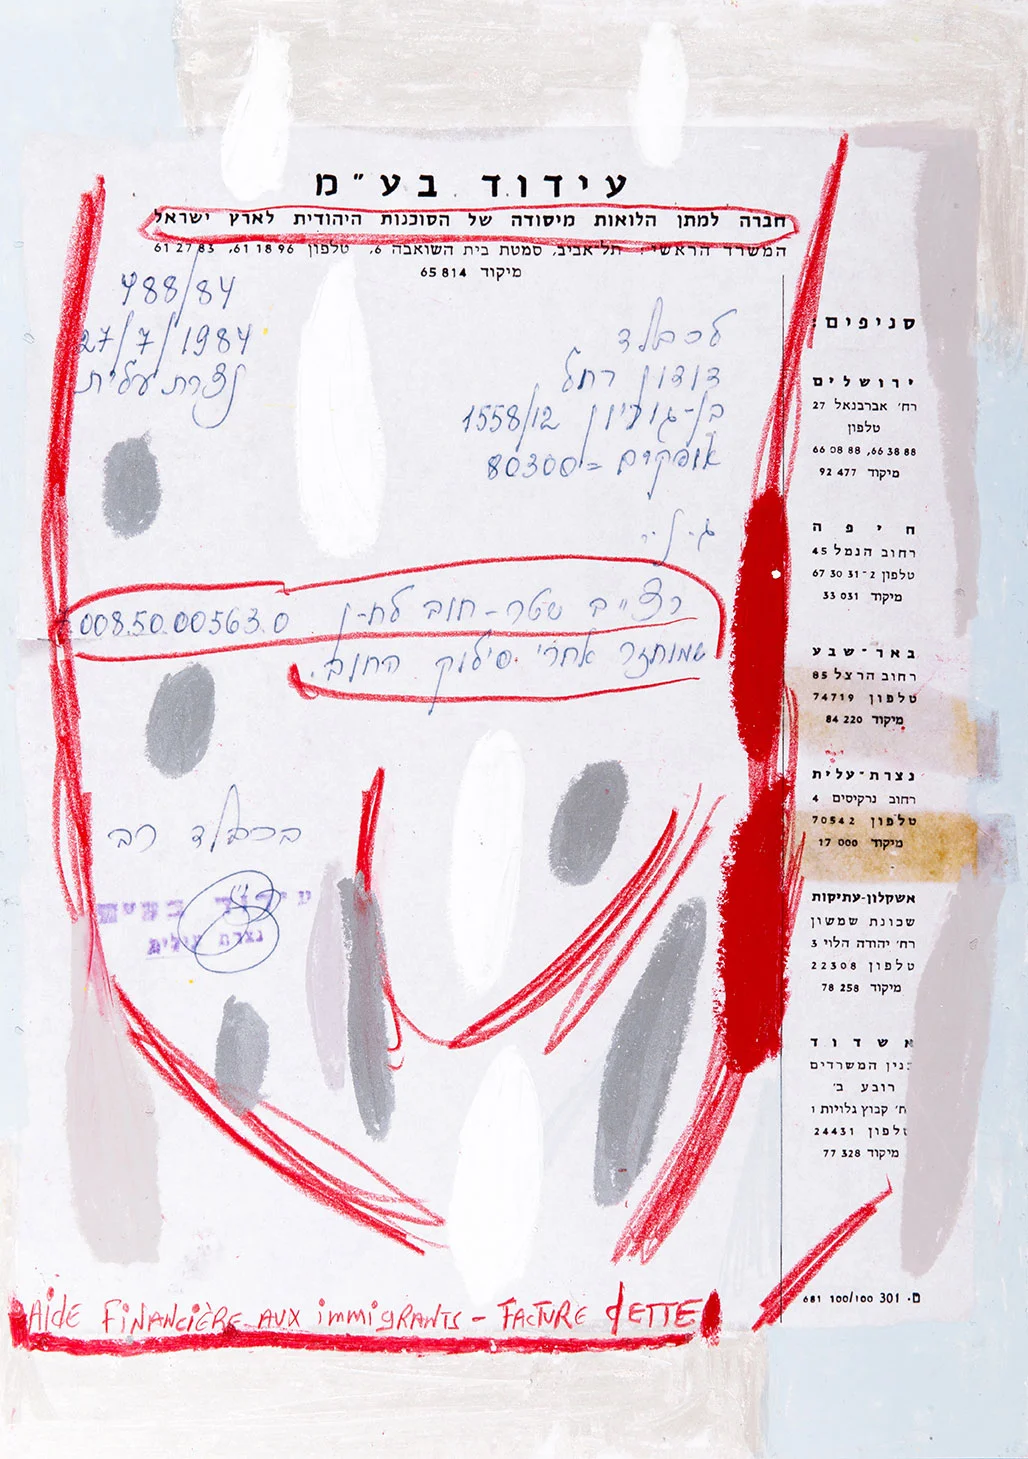 עידוד בע״מ
חברה למתן הלואות מיסודה של הסוכנות היהודית לארץ ישראל
המשרד הראשי: תל-אביב, סמטת בית השואבה 6, טלפון 61 18 96, 61 27 83
מיקוד 65814
488/84
27/7/1984
נצרת עלית
לכבוד
דודון רחל
בן-גוריון 1558/12
אופקים - 80300
ג-נ-
רצ״ב שטר-חוב לח-ן 008.50.00563.0
שמוחזר אחרי סילוק החוב.
בכבוד רב
עידוד בע״מ
נצרת עילית
סניפים:
ירושלים
רח׳ אברבנאל 27
טלפון
66 38 88, 66 08 88
מיקוד 92 477
חיפה
רחוב הנמל 45
טלפון 2-31 30 67
מיקוד 33 031
באר-שבע
רחוב הרצל 85
טלפון 74719
מיקוד 84 220
נצרת-עלית
רחוב נרקיסים 4
טלפון 70542
מיקוד 17 000
אשקלון-עתיקות
שכונת שמשון
רח׳ יהודה הלוי 3
טלפון 22308
מיקוד 78 258
אשדוד
בנין המשרדים
רובע ב׳
רח׳ קבוץ גלויות 1
טלפון 24431
מיקוד 77 328
ם. 301 100/100 681
AIDE FINANCIÈRE AUX IMMIGRANTS - FACTURE DETTE